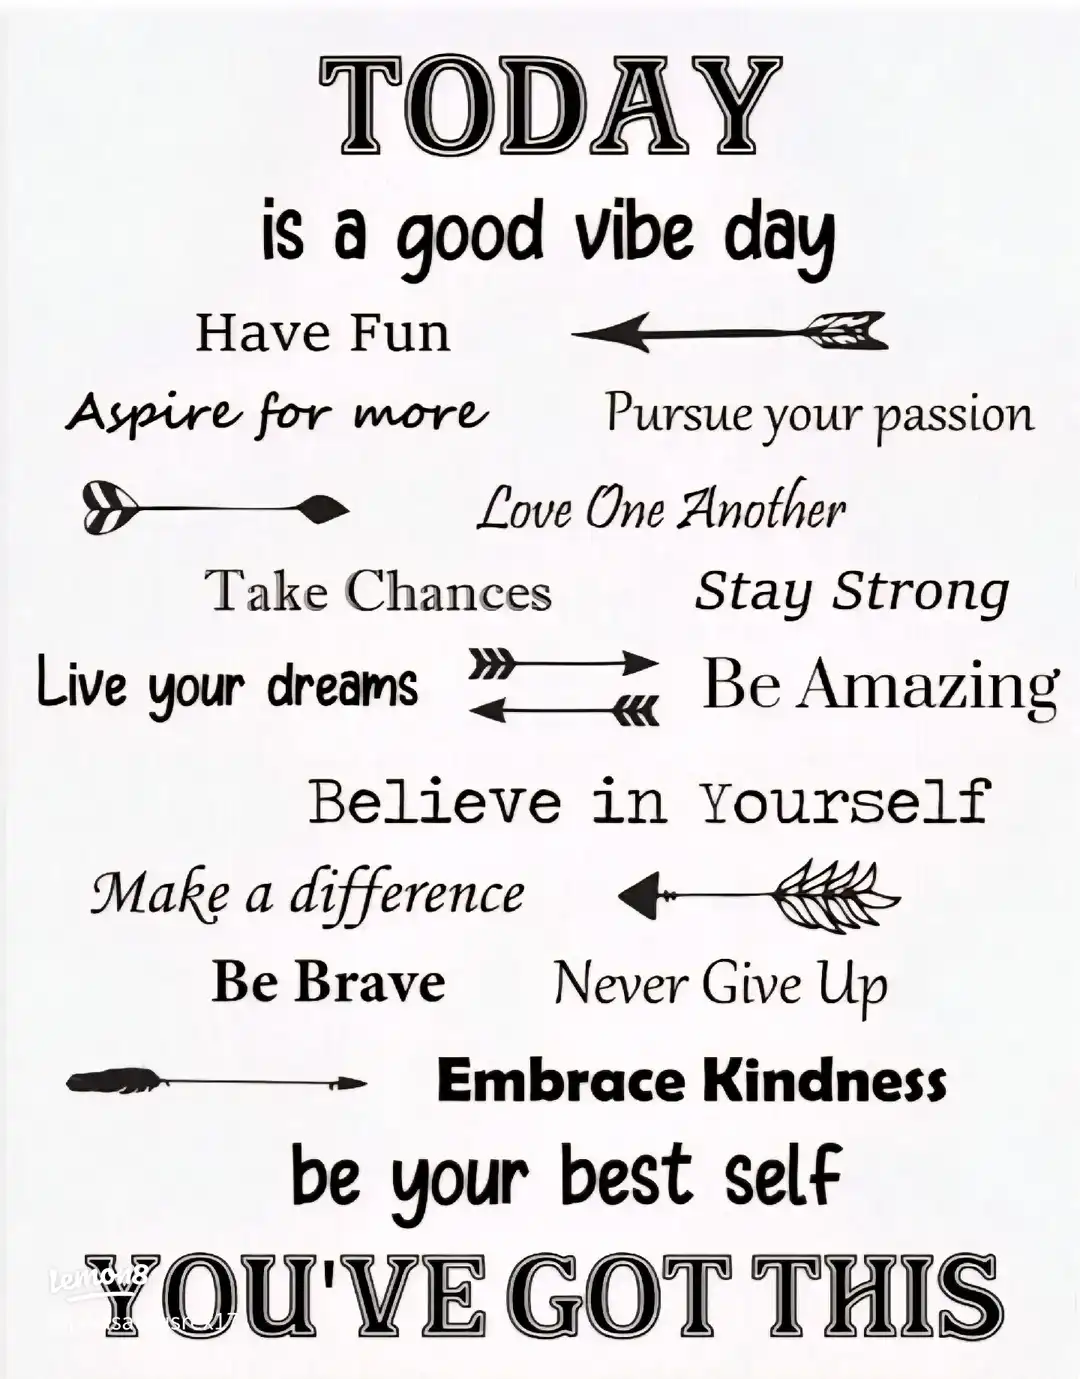 TODAY
is a good vibe day
Have Fun
Aspire for more
Pursue your passion
Love One Another
Take Chances
Stay Strong
Live your dreams
Be Amazing
Believe in Yourself
Make a difference
Be Brave
Never Give Up
Embrace Kindness
be your best self
YOU'VE GOT THIS
lemon8